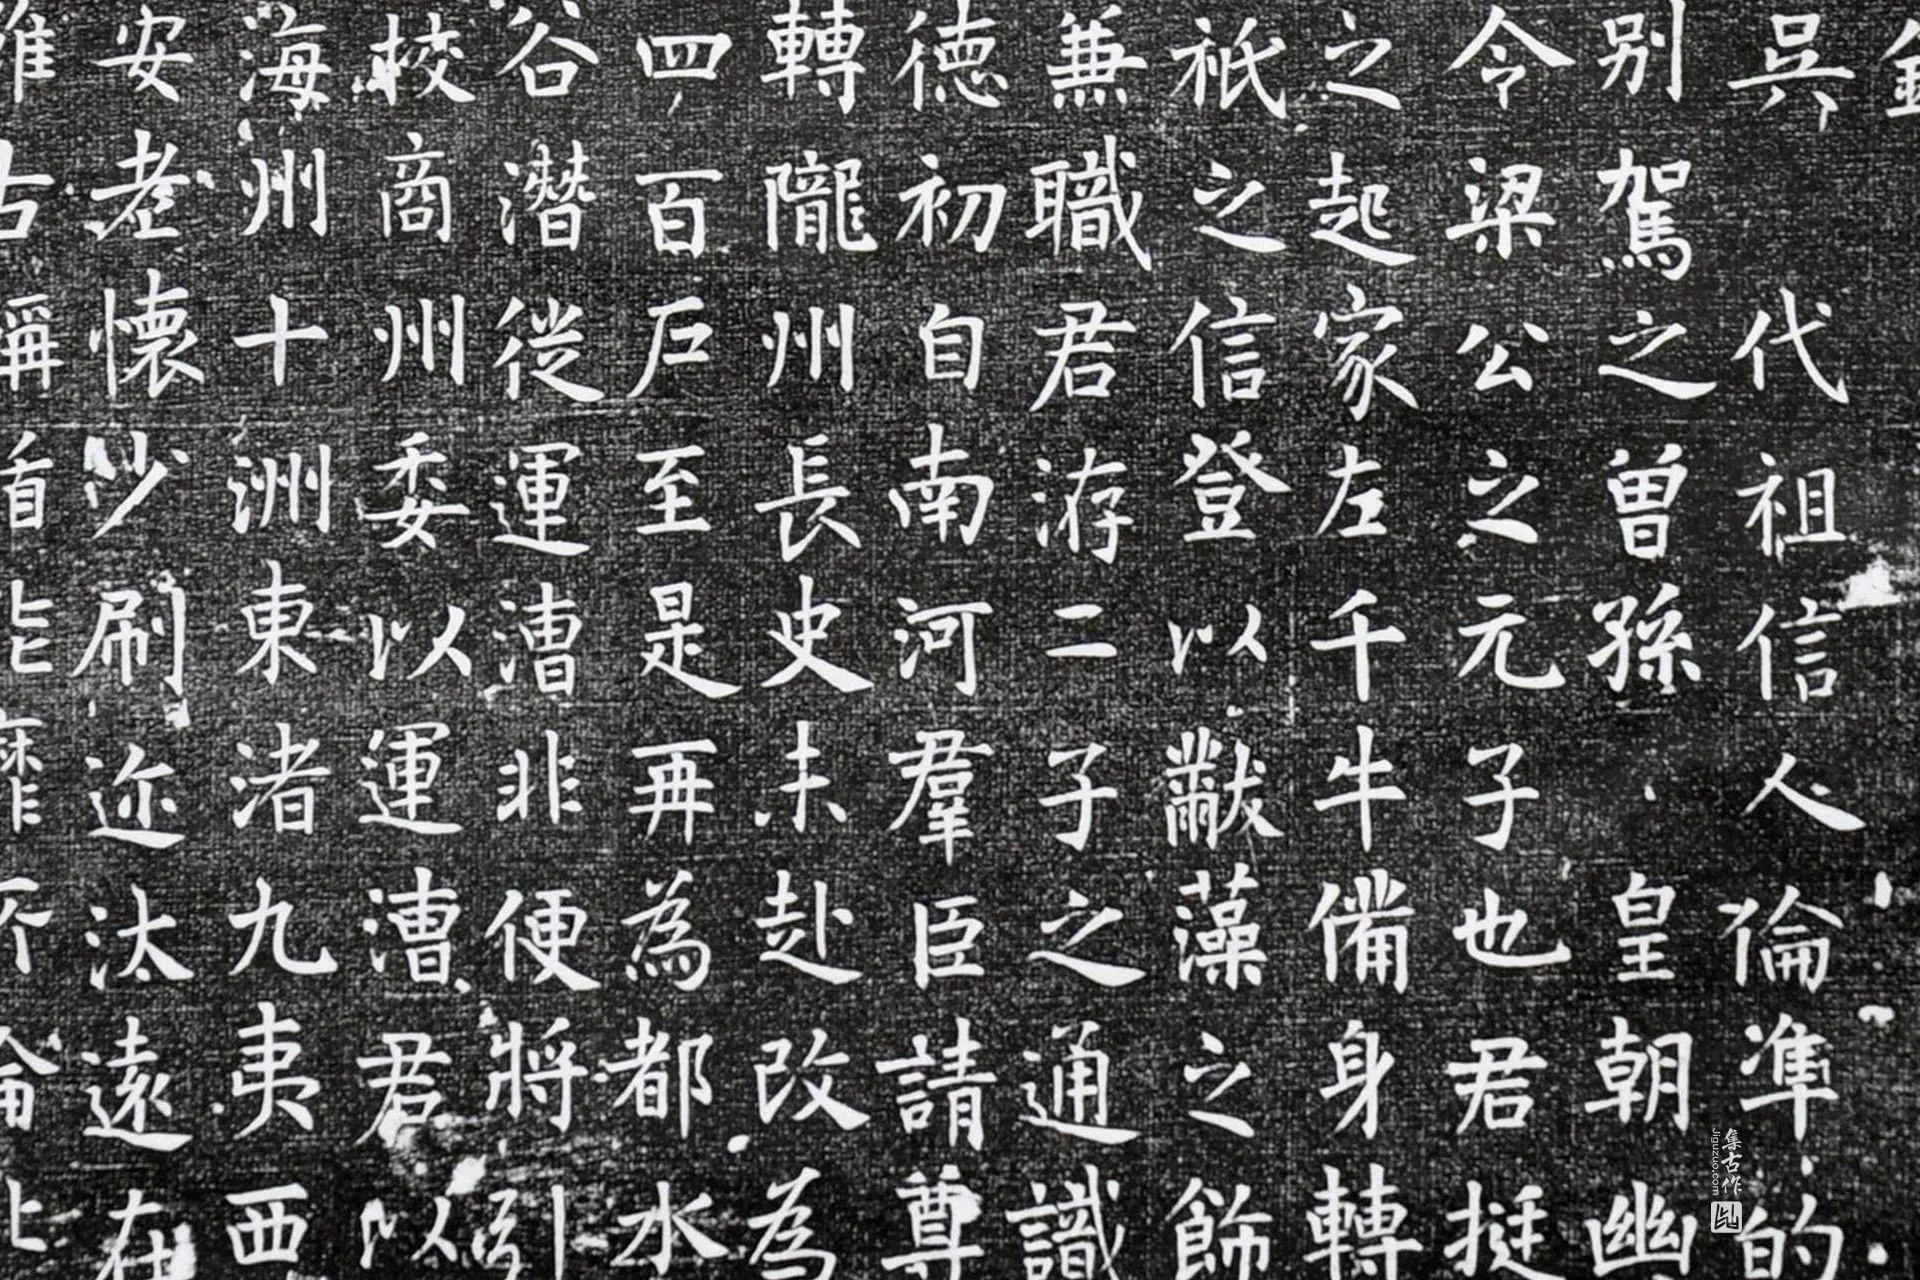 吳 代祖信人倫準的
別駕之曾孫 皇朝幽
令梁公之元子也君挺
之起家左千牛備身轉
祇之信登以黻藻之飾
兼職君游二子之通識
德初自南河羣臣請尊
轉隴州長史未赴改為
四百户至是再為都水
谷潛從運漕非便將引
校商州委以運漕君以
海州十洲東渚九夷西
安老懷少刷迩汰遠在
集古作
Jiguzuo.com